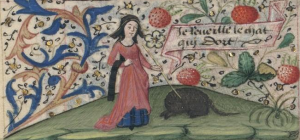 Je Reveille le chat
qui Dort